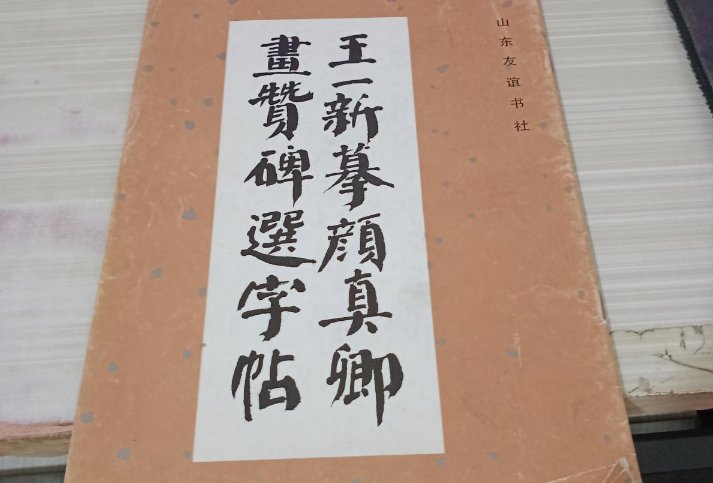 王一新摹顔真卿
畫贊碑選字帖
山东友谊书社